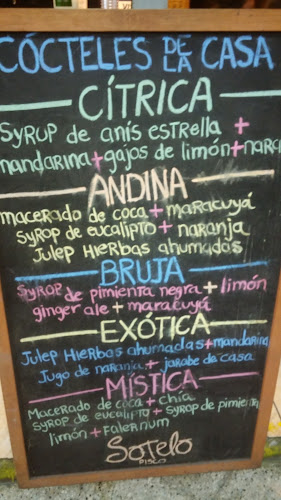 CÓCTELES DE LA CASA
CÍTRICA
SYRUP de anís estrella +
mandarina + gajos de limón + nara
ANDINA
macerado de coca + maracuyá
syrop de eucalipto + naranja
Julep Hierbas ahumados
BRUJA
SYROP de pimienta negra + limón
ginger ale + maracuyá
EXÓTICA
Julep Hierbas ahumadas + mandarina
Jugo de naranja + jarobe de casa
MÍSTICA
Macerado de coca + chía
syrop de eucalipto + syrop de pimienta
limón + Falernum
Sotelo
PISCO